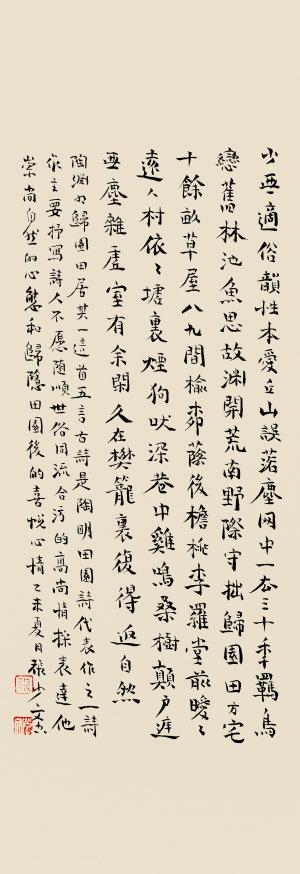 少無適俗韻性本愛丘山誤落塵网中一去三十季羈鳥
戀舊林池魚思故淵開荒南野際守拙歸園田方宅
十餘畝草屋八九間榆柳蔭後檐桃李羅堂前曖〻
遠人村依〻墟裏煙狗吠深巷中雞鳴桑樹顛戶庭
無塵雜虛室有余閑久在樊籠裏復得返自然
陶淵明歸園田居其一這首五言古詩是陶明田園詩代表作之一詩
作主要抒寫詩人不愿隨順世俗同流合污的高尚情操表達他
崇尚自然的心態和歸隱田園後的喜悅心情乙未夏月張少文